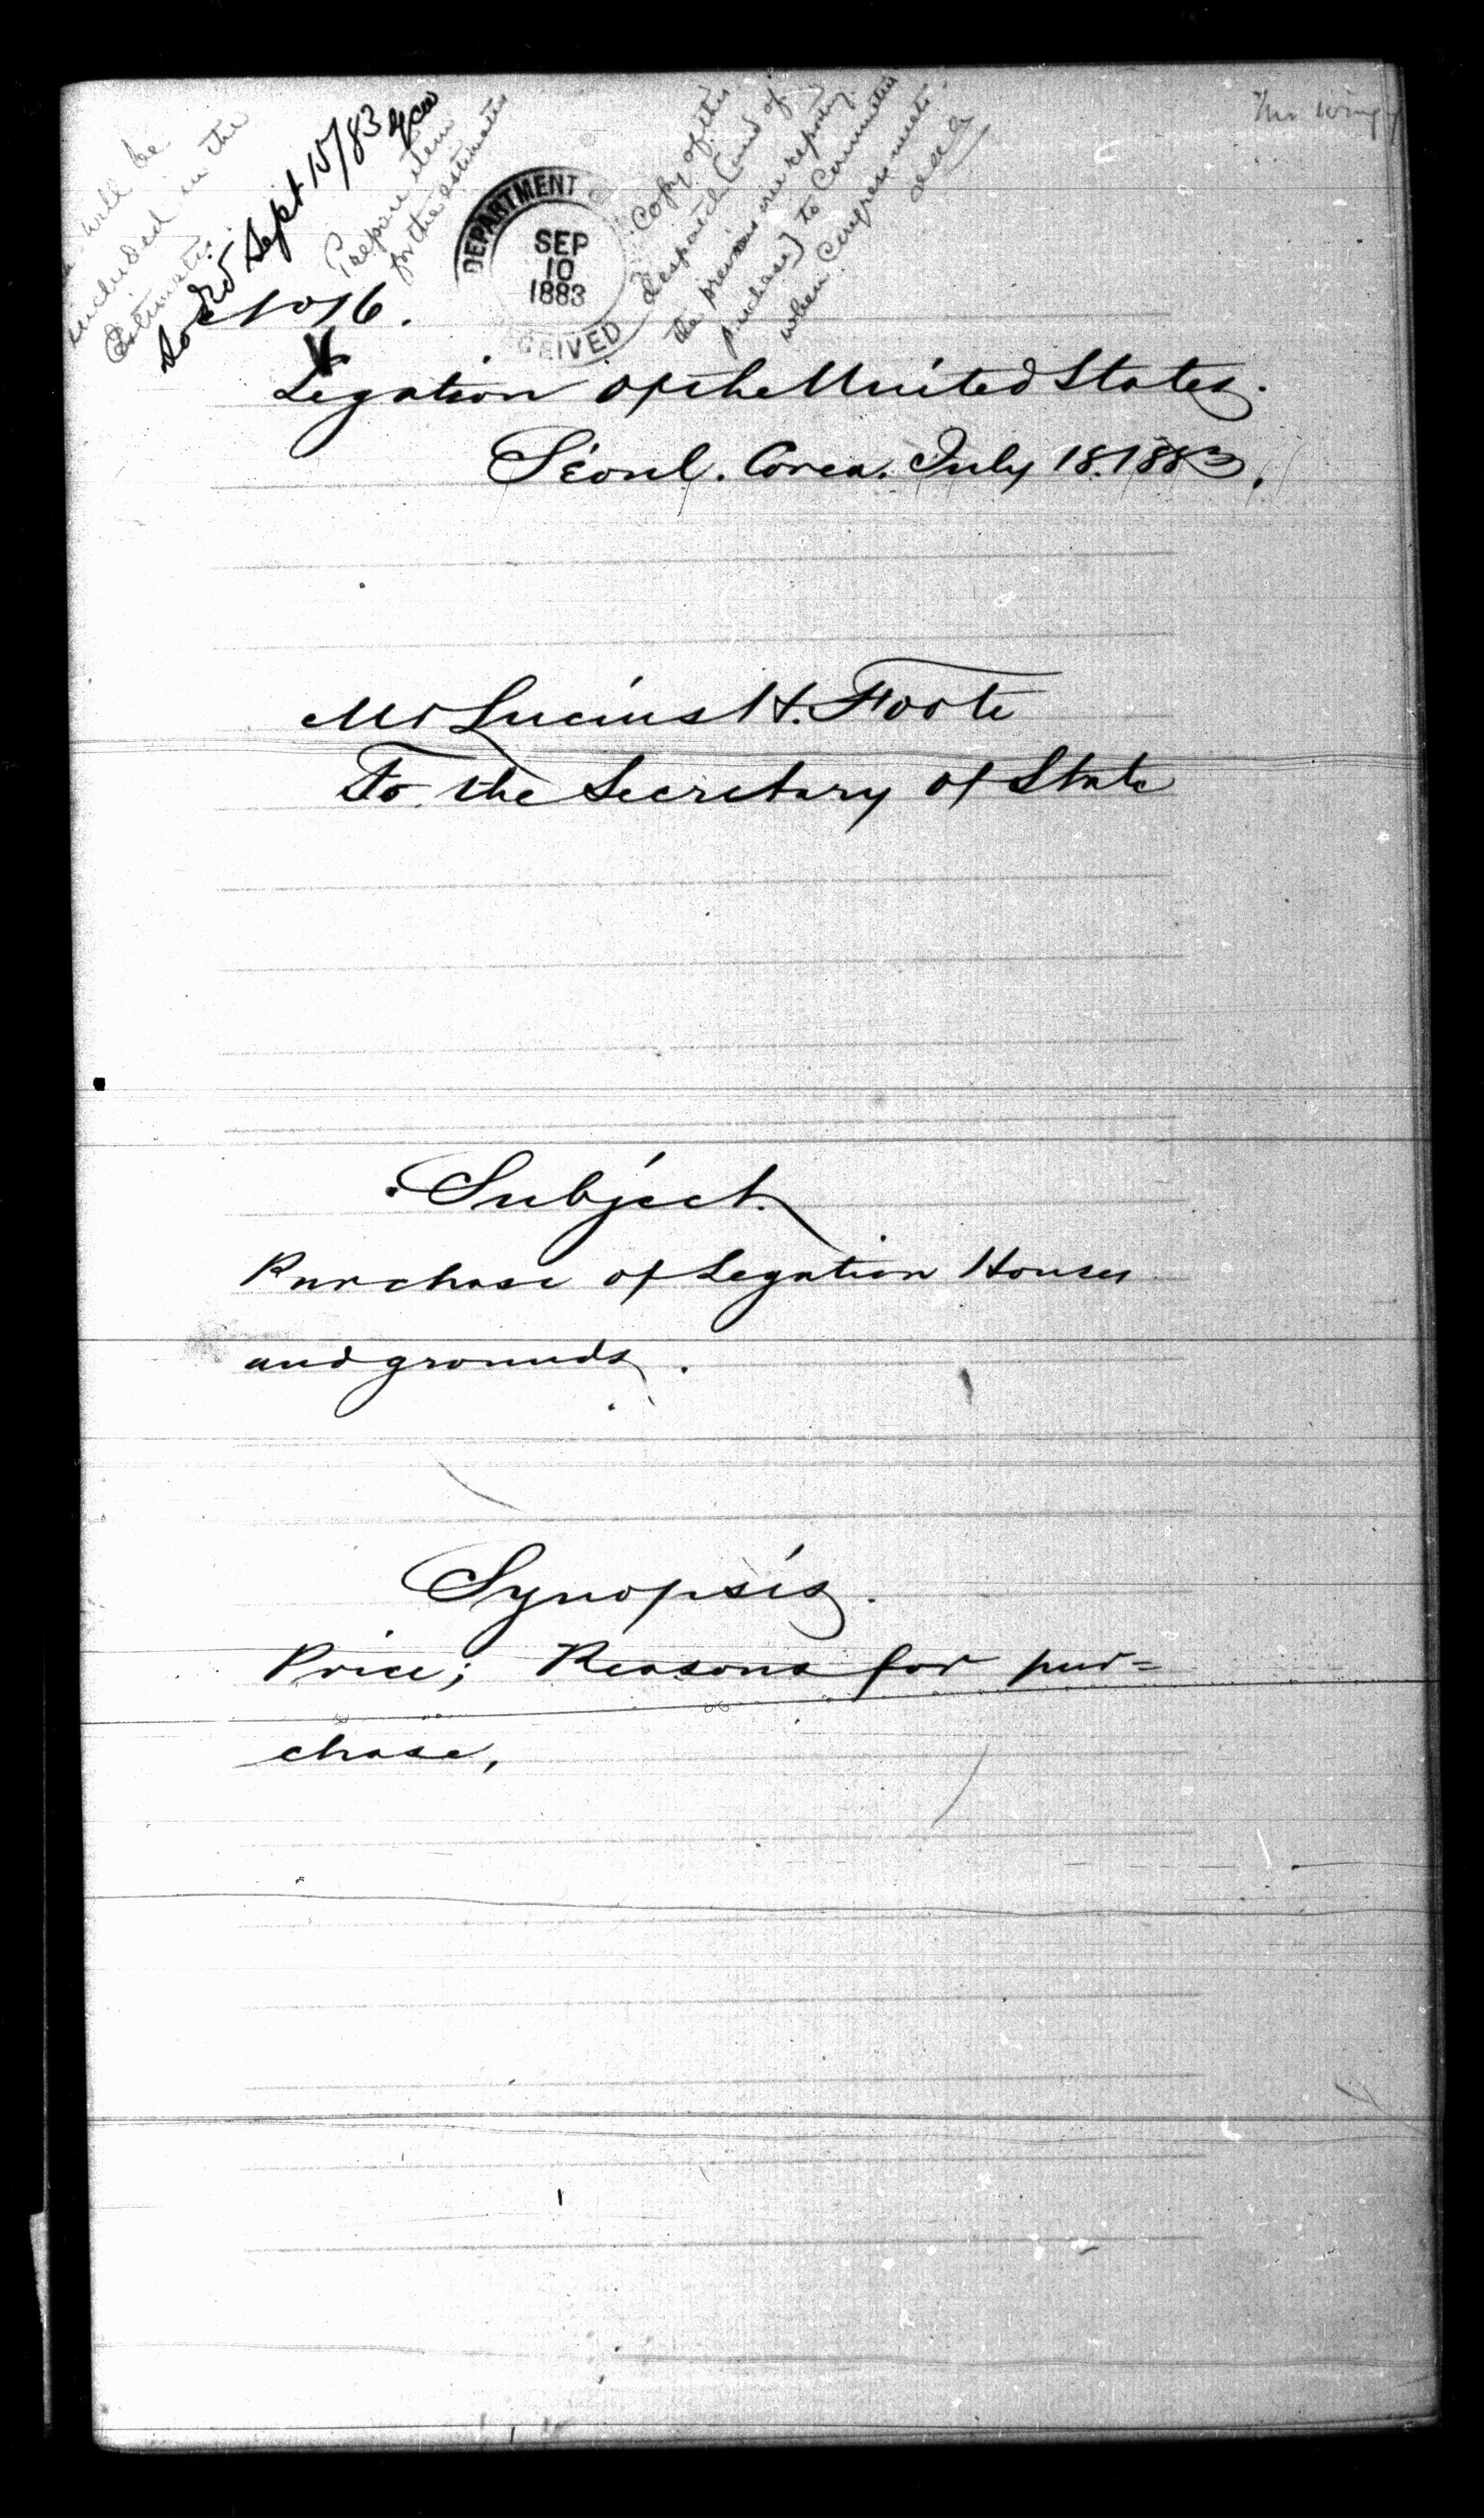 will be
included in the
Estimates.
Ackd Sept 15/83
Prepare item
for the estimates
DEPARTMENT
SEP
10
1883
RECEIVED
Copy of this
despatch (and of
the previous one reporting
purchase) to Committee
when Congress meets.
No 16.
Legation of the United States.
Séoul. Corea. July 18. 1883.
Mr Lucius H. Foote
To the Secretary of State
Subject.
Purchase of Legation Houses
and grounds.
Synopsis.
Price; Reasons for pur=
chase,